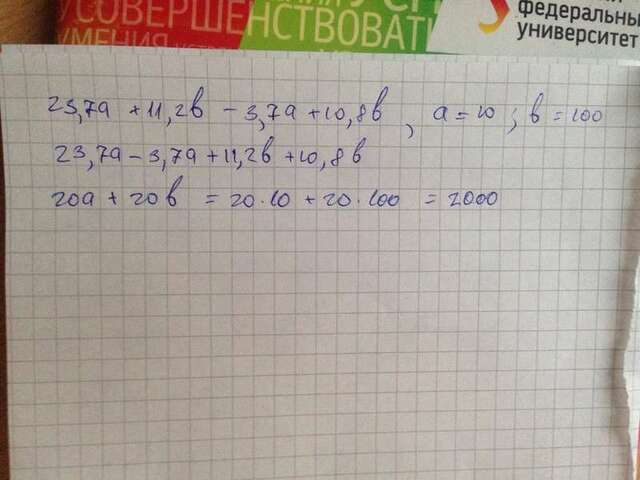 УСОВЕРШЕНСТВОВАТЬ
УМЕНИЯ
федеральный
университет
23,7a + 11,2b - 3,7a + 10,8b , a = 10 ; b = 100
23,7a - 3,7a + 11,2b + 10,8b
20a + 20b = 20·10 + 20·100 = 2000